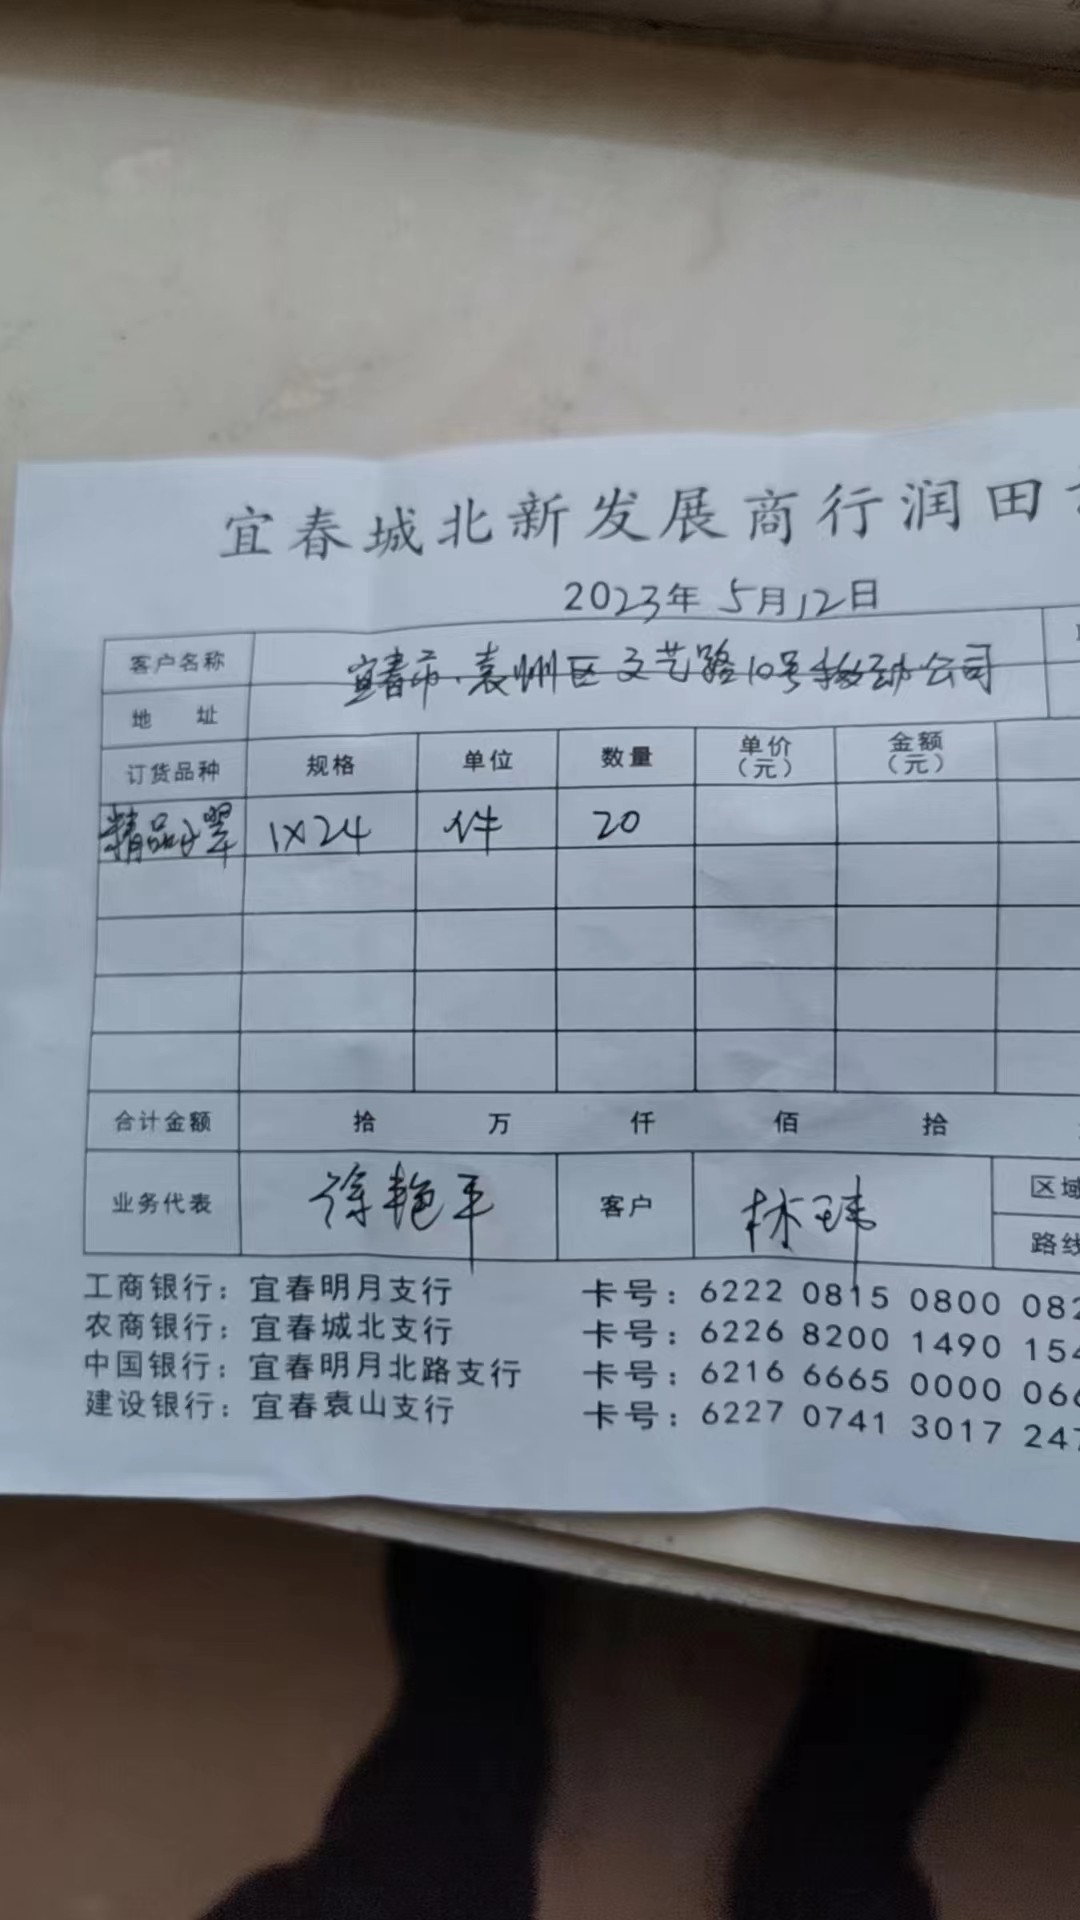 宜春城北新发展商行润田
2023年 5月12日
客户名称
宜春市.袁州区文艺路10号移动公司
地 址
订货品种 规格 单位 数量 单价(元) 金额(元)
精品小翠 1X24 件 20
合计金额 拾 万 仟 佰 拾
业务代表 徐艳平 客户 林玮 区域
路线
工商银行：宜春明月支行 卡号：6222 0815 0800 082
农商银行：宜春城北支行 卡号：6226 8200 1490 154
中国银行：宜春明月北路支行 卡号：6216 6665 0000 066
建设银行：宜春袁山支行 卡号：6227 0741 3017 247